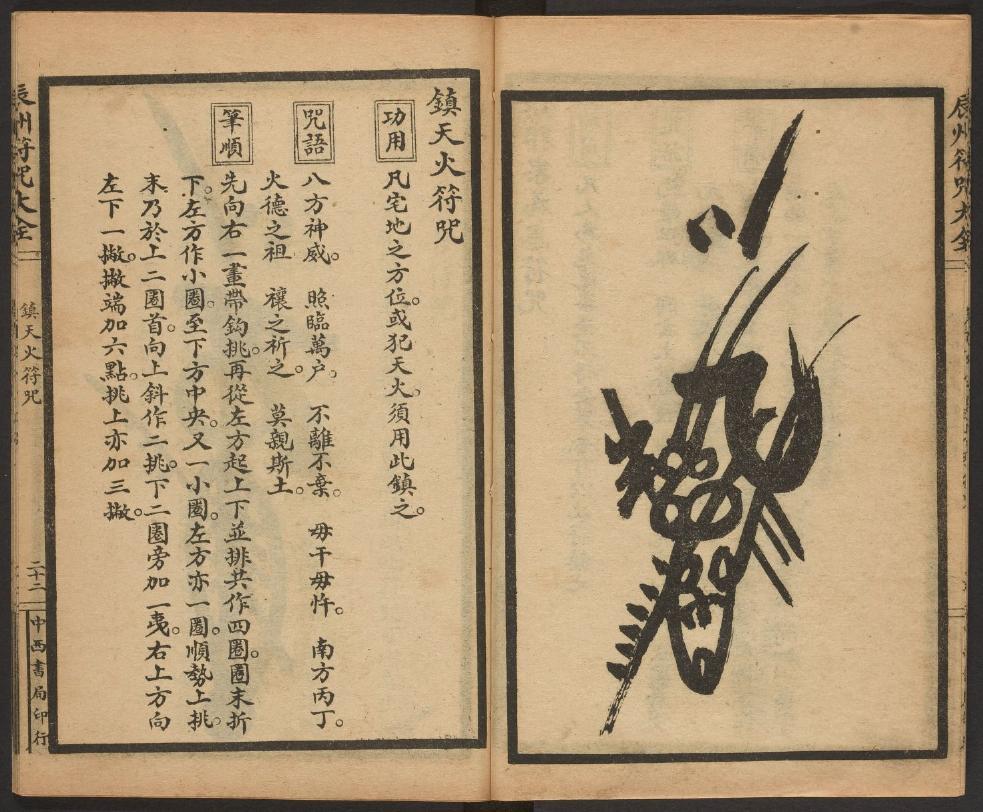 辰州符咒大全
鎮天火符咒
功用
凡宅地之方位。或犯天火。須用此鎮之。
咒語
八方神威。　照臨萬户。　不離不棄。　毋干毋忤。　南方丙丁。
火德之祖　禳之祈之。　莫親斯土。
筆順
先向右一畫帶鈎挑。再從左方起上下並排共作四圈。圈末折
下。左方作小圈。至下方中央。又一小圈。左方亦一圈。順勢上挑。
末乃於上二圈首。向上斜作二挑。下二圈旁加一夷。右上方向
左下一撇。撇端加六點。挑上亦加三撇。
辰州符咒大全
鎮天火符咒
二十二
中西書局印行